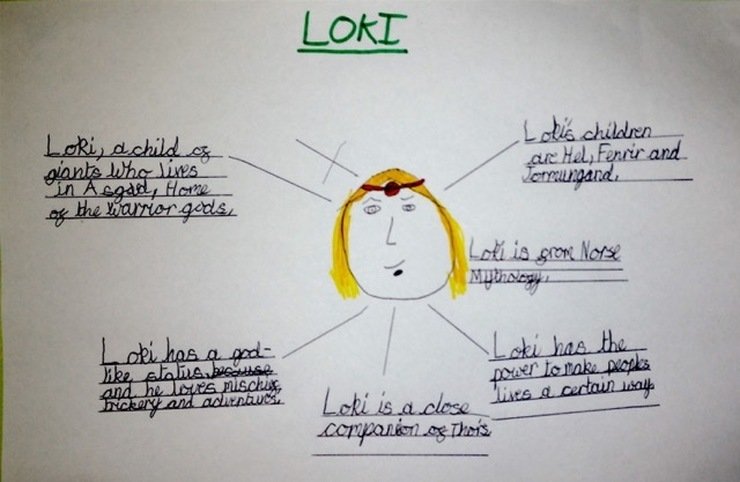 LOKI
Loki, a child of
giants who lives
in Asgad, Home
of the warrior gods.
Loki's children
are Hel, Fenrir and
Jormungand.
Loki is from Norse
Mythology.
Loki has a god-
like status because
and he loves mischief,
trickery and adventures.
Loki is a close
companion of Thor's
Loki has the
power to make peoples
lives a certain way